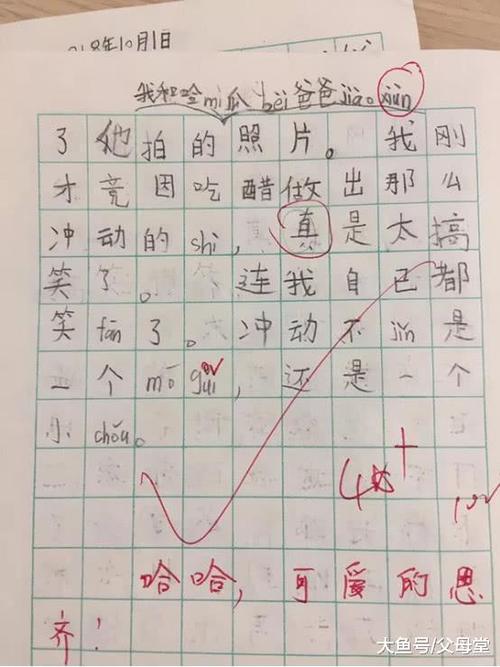 018年10月1日
我和哈mi瓜bèi爸爸jiao xùn
了他拍的照片。我刚
才竟因吃醋做出那么
冲动的shi，真是太搞
笑了。连我自己都
笑fān了。冲动不jǐn是
一个mō guǐ，还是一个
小chǒu。
哈哈，可爱的思
齐！
大鱼号/父母堂